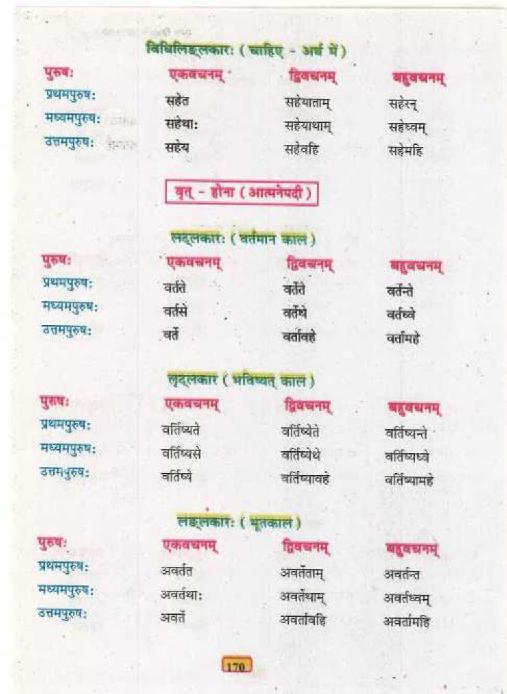 विधिलिङ्लकारः ( चाहिए - अर्थ में )
पुरुषः एकवचनम् द्विवचनम् बहुवचनम्
प्रथमपुरुषः सहेत सहेयाताम् सहेरन्
मध्यमपुरुषः सहेथाः सहेयाथाम् सहेध्वम्
उत्तमपुरुषः सहेय सहेवहि सहेमहि
वृत् - होना ( आत्मनेपदी )
लट्लकारः ( वर्तमान काल )
पुरुषः एकवचनम् द्विवचनम् बहुवचनम्
प्रथमपुरुषः वर्तते वर्तेते वर्तन्ते
मध्यमपुरुषः वर्तसे वर्तेथे वर्तध्वे
उत्तमपुरुषः वर्ते वर्तावहे वर्तामहे
लृट्लकार ( भविष्यत् काल )
पुरुषः एकवचनम् द्विवचनम् बहुवचनम्
प्रथमपुरुषः वर्तिष्यते वर्तिष्येते वर्तिष्यन्ते
मध्यमपुरुषः वर्तिष्यसे वर्तिष्येथे वर्तिष्यध्वे
उत्तमपुरुषः वर्तिष्ये वर्तिष्यावहे वर्तिष्यामहे
लङ्लकारः ( भूतकाल )
पुरुषः एकवचनम् द्विवचनम् बहुवचनम्
प्रथमपुरुषः अवर्तत अवर्तेताम् अवर्तन्त
मध्यमपुरुषः अवर्तथाः अवर्तेथाम् अवर्तध्वम्
उत्तमपुरुषः अवर्ते अवर्तावहि अवर्तामहि
170